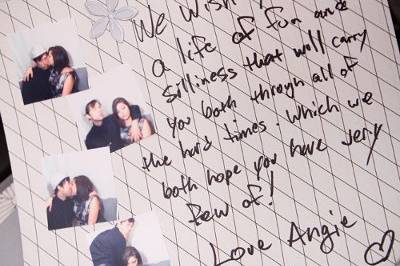 We wish
a life of fun and
silliness that will carry
you both through all of
the hard times. Which we
both hope you have very
few of!
Love Angie